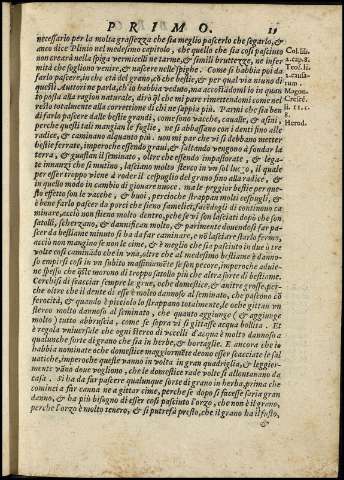 PRIMO. 21
necessarlo per la molta grassezza che sia meglio pascerlo che segarlo, &
anco dice Plinio nel medesimo capitolo, che quello che sia così pasciuto
non creara nella spiga vermicelli ne tarme, & simili bruttezze, ne infer
mità che sogliono venire, & nascere nelle spighe. Come si habbia poi da
farlo pascere, in che età del grano, cõ che bestie, & per qual via niuno di
questi Auttori ne parla, ch'io habbia veduto, ma accostãdomi io in quan
to posta alla ragion naturale, dirò ql che mi pare rimettendomi come nel
resto totalmente alla correttione di chi ne sappia più. Parmi che sia ben
di farlo pascere dalle bestie grandi, come sono vacche, caualle, & asini,
perche questi tali mangian le foglie, ne si abbassano con i denti fino alle
radice, & caminano alquanto più. non mi par che vi si debbano metter
bestie ferrate, imperoche essendo graui, & saltando vengono à fondar la
terra, & guastan il seminato, oltre che essendo impastorate, & lega-
te innanzi che si mutino, lasciano molto sterco in vn sol luogo, il quale
per esser troppo viene à roder il cespuglio del grano fino alla radice, &
in quello modo in cambio di giouare nuoce. ma le peggior bestie per que-
sto effetto son le vacche, & buoi, perche strappan molti cespugli, &
è bene farlo pascer da porci che sieno famelici, facẽdogli di continuo ca
minare, acciò non stiena molto dentro, pche se vi son lasciati dopò che son
satolli, scherzano, & dannifican molto, & parimente douendosi far pa-
scer da bestiame minuto si ha da far caminare, e nõ lasciar restarlo fermo,
acciò non mangino se non le cime, & è meglio che sia pasciuto in due ò tre
volte così caminãdo che in vna, oltre che al medesimo bestiame è danno-
so empirsi così in vn subito massimamẽte se son pecore, imperoche aduie-
ne spesso che q̃lle morono di troppo satollo più che altra sorte di bestiame.
Cerchisi di scacciar sempre le grue, oche domestice, & anitre grosse, per-
che oltre che il dente di esse è molto dannoso al seminato, che pascono cõ
ferocità, & quando è picciolo lo strappano totalmente, le oche gittan vn
sterco molto dannoso al seminato, che quanto aggiunge (& aggiunge
molto) tutto abbrascia, come se sopra vi si gittasse acqua bollita. Et
è regola vniuersale che ogni sterco di vccelli d'acqua è molto dannoso a
qualunche sorte di grano che sia in herbe, & hortaglie. E ancora che io
habbia nominate oche domestice maggiormẽte deono esser scacciate le sal
uatiche, imperoche quelle vanno in vn gran quadriglia, & leggier-
mente vãno doue vogliono, che le domestice rade volte si allontanano da
casa. Si ha da far pascere qualunque sorte di grano in herba, prima che
cominci a far canna ne a gittar cime, perche se dopò si facesse saria gran
danno, & ha più bisogno di esser così pasciuto l'orzo, che non è il grano,
perche l'orzo è molto tenero, & si putrefà presto, che il grano ha il fusto,
&
Col. lib.
2. cap. 8.
Teo. li.
2. causa
rum.
Magon.
Crescẽ.
li. 11. c.
8.
Herod.